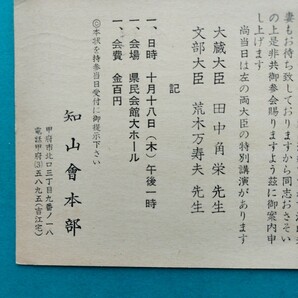 妻もお待ち致しておりますから同志おさそい
の上是非共御参会賜りますよう玆に御案内申
し上げます
尚当日は左の両大臣の特別講演があります
大蔵大臣 田中角栄先生
文部大臣 荒木万寿夫先生
記
一、日時 十月十八日(木)午後一時
一、会場 県民会館大ホール
一、会費 金百円
◎本状を持参当日受付に御提示下さい
知山會本部
甲府市北口三丁目九番ノ一八
電話甲府(3)五八九五(吉江宅)